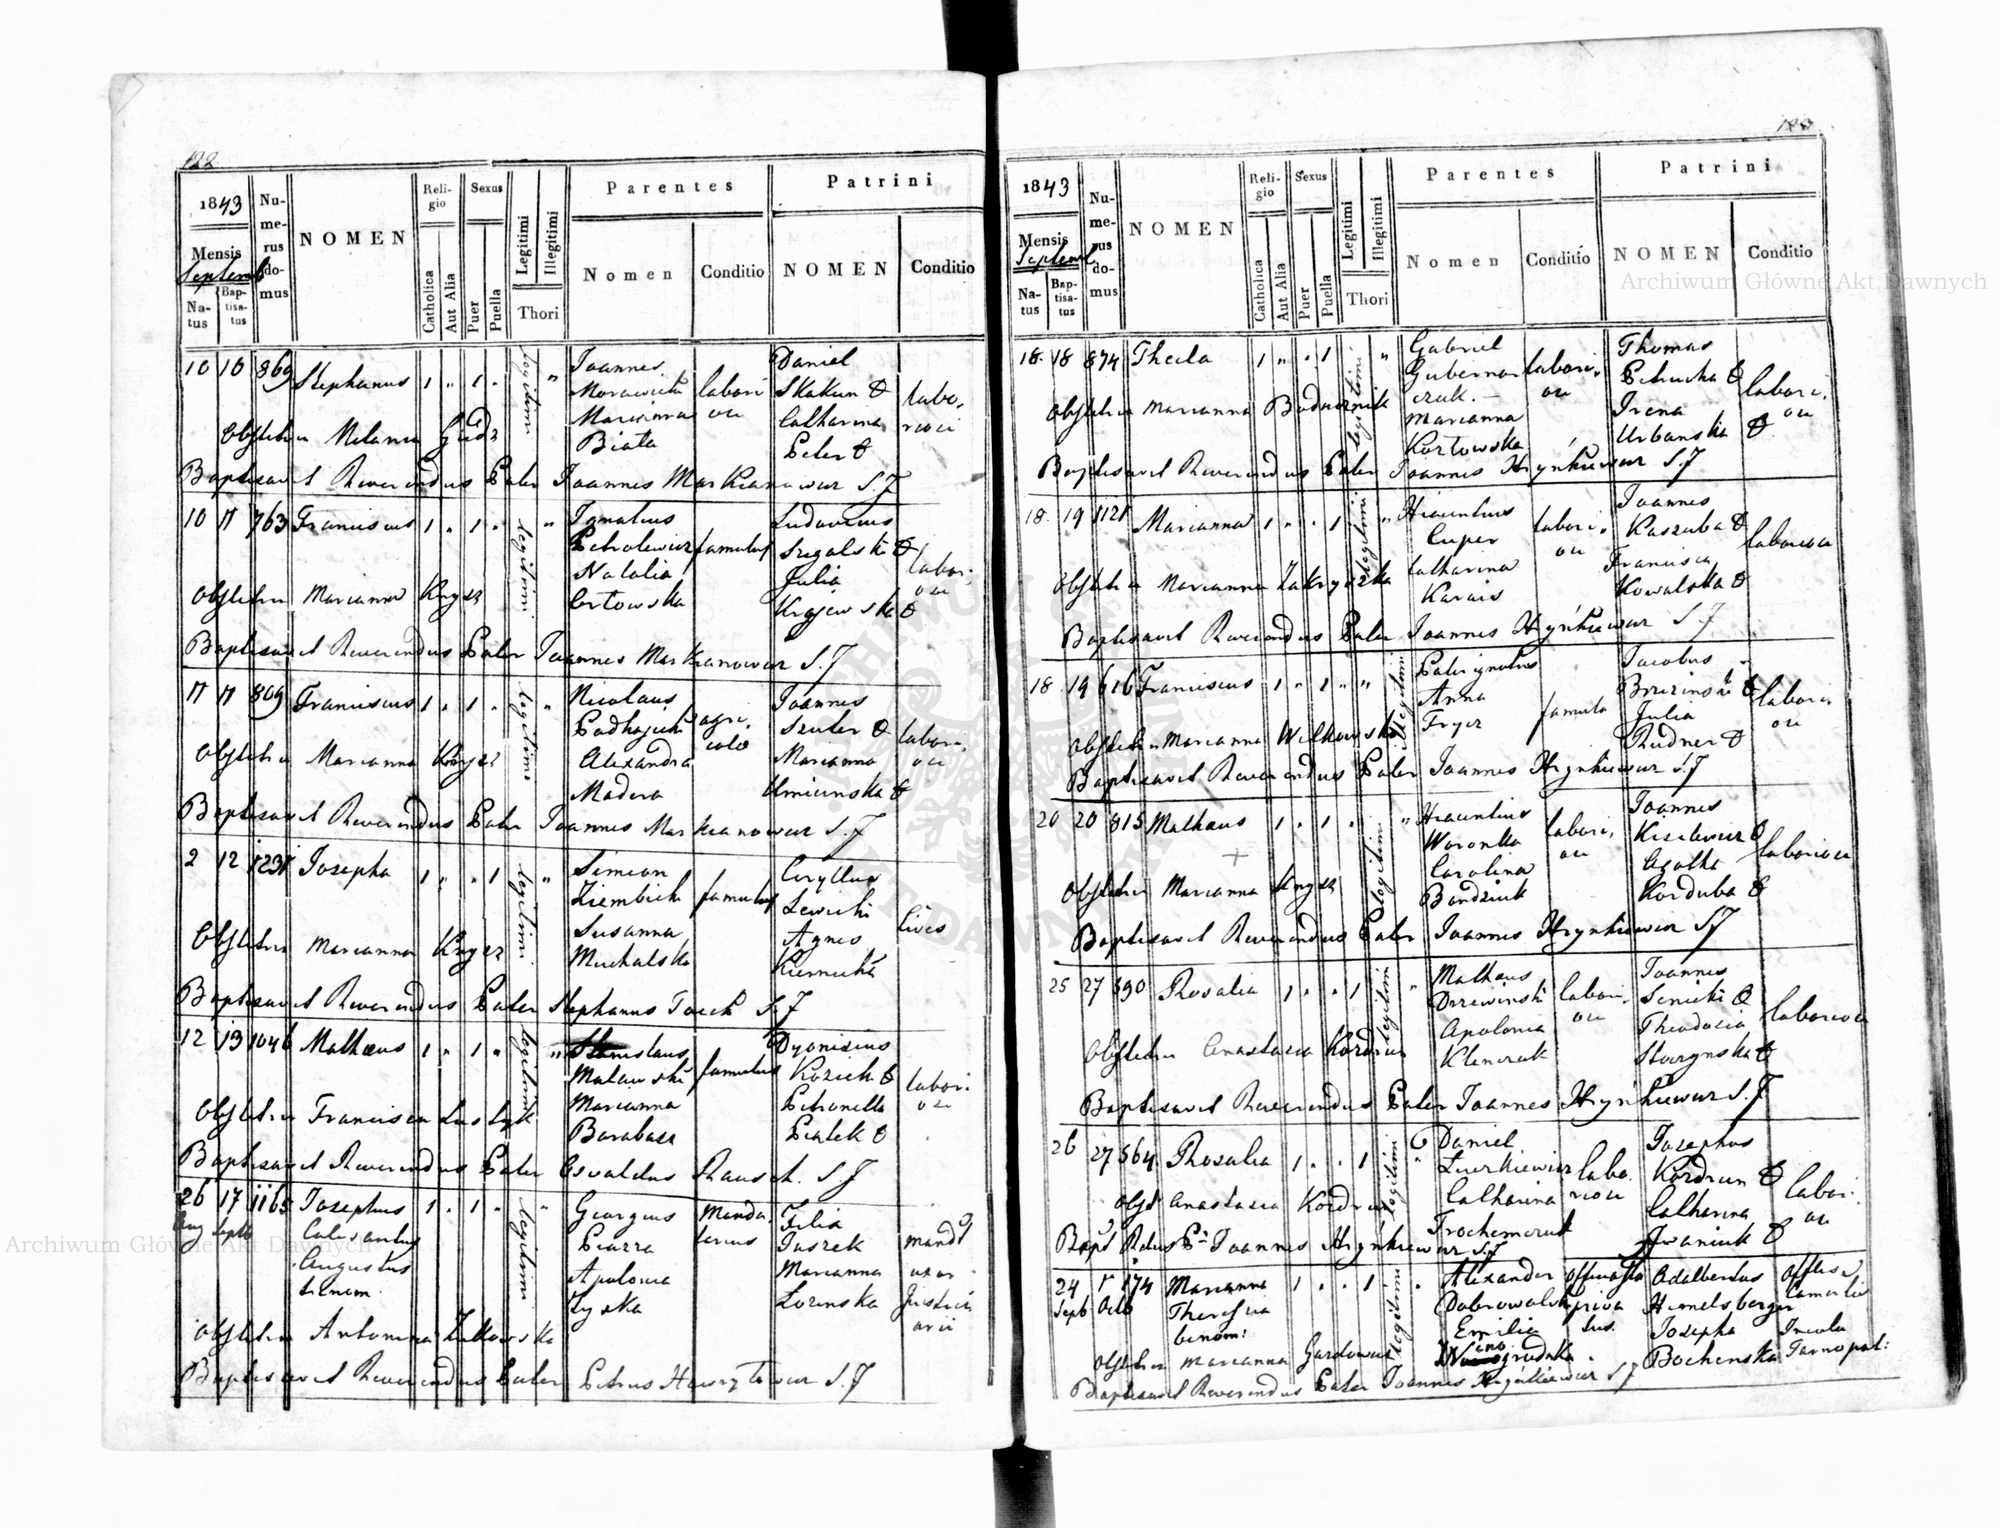 122
1843
Mensis
Septemb
Na-
tus
Bap-
tisa-
tus
Nu-
me-
rus
do-
mus
NOMEN
Reli-
gio
Catholica
Aut Alia
Sexus
Puer
Puella
Legitimi
Illegitimi
Thori
Parentes
Nomen
Conditio
Patrini
NOMEN
Conditio
10 10 869 Stephanus 1 " 1 "
legitimi
Joannes
Marianna
Biała
labori
osi
Daniel
Skakun &
Catharina
Peter &
labo.
riosi
Obstetrix Melania
Baptisavit Reverendus Pater Joannes Markianowicz S.J
10 11 763 Franciscus 1 " 1 "
legitimi
Ignatius
Petrolewicz famulus
Natalia
Ortowska
Ludovicus
Szegalski &
Julia
Krajewska &
labori.
osi
Obstetrix Marianna Knysz
Baptisavit Reverendus Pater Joannes Markianowicz S.J
11 11 809 Franciscus 1 " 1 "
legitimi
Nicolaus
Podhajecki
Alexandra
Madera
agri.
cola
Joannes
Szuter &
Marianna
Umicinska &
labori.
osi
Obstetrix Marianna Knysz
Baptisavit Reverendus Pater Joannes Markianowicz S.J
2 12 1231 Josepha 1 " " 1
legitimi
Simeon
Ziembicki famulus
Susanna
Michalska
Cyryllus
Lewicki
Agnes
Kiernicka
Cives
Obstetrix Marianna Knysz
Baptisavit Reverendus Pater Stephanus S.J
12 13 1046 Mathaeus 1 " 1 "
legitimi
Stanislaus
Malawski famulus
Marianna
Barabasz
Dyonisius
Kozick &
Petronella
Piatek &
labori.
osi
Obstetrix Francisca
Baptisavit Reverendus Pater Osvaldus Rausch. S.J
26 17 1165 Josephus 1 " 1 "
Aug Septb
Calesantus
Augustus
trinom.
legitimi
Georgius
Piazza
Apolonia
Zyska
manda
tarius
Filia
Juszek
Marianna
Lozinska
mandt
uxor
Justici
arii
Obstetrix Antonina Zukowska
Baptisavit Reverendus Pater Petrus Hawrytowicz S.J
123
1843
Mensis
Septemb
Na-
tus
Bap-
tisa-
tus
Nu-
me-
rus
do-
mus
NOMEN
Reli-
gio
Catholica
Aut Alia
Sexus
Puer
Puella
Legitimi
Illegitimi
Thori
Parentes
Nomen
Conditio
Patrini
NOMEN
Conditio
Archiwum Główne Akt Dawnych
18. 18 874 Thecla 1 " " 1
legitimi
Gabriel
Gubernar
czuk.
Marianna
Kortowska
labori.
osi
Thomas
Petrucha &
Irena
Urbanska &
labori.
osi
Obstetrix Marianna Bodnarnik
Baptisavit Reverendus Pater Joannes Hrynkiewicz S.J
18. 19 1121 Marianna 1 " " 1
legitimi
Hiacintus
Cuper
Catharina
Karais
labori.
osi
Joannes
Kaszuba &
Francisca
Kowalska &
laboriosi
Obstetrix Marianna Zakryszka
Baptisavit Reverendus Pater Joannes Hrynkiewicz S.J
18. 19 616 Franciscus 1 " 1 " "
Illegitimi
Pater ignotus
Anna
Fryez
famula
Jacobus
Brzezinski &
Julia
Rudner &
labori
osi
Obstetrix Marianna Witkowska
Baptisavit Reverendus Pater Joannes Hrynkiewicz S.J
20 20 815 Mathaus 1 " 1 "
legitimi
Hiacintius
Woronka
Carolina
Bandziuk
labori.
osi
Joannes
Kisilewicz &
Agatha
Korduba &
laboriosi
Obstetrix Marianna Knysz
Baptisavit Reverendus Pater Joannes Hrynkiewicz S.J
25 27 590 Rosalia 1 " " 1
legitimi
Mathaus
Drzewinski
Apolonia
Klimczuk
labori.
osi
Joannes
Senicki &
Theodozia
Skorynska &
laboriosi
Obstetrix Anastasia Kordrun
Baptisavit Reverendus Pater Joannes Hrynkiewicz S.J
26 27 564 Rosalia 1 " " 1
legitimi
Daniel
Luczkiewicz
Catharina
Trochemczuk
labo.
riosi
Josephus
Kordrun &
Catharina
Iwaniuk &
labori.
osi
Obst Anastasia Kordrun
Bapt Rdus Pr Joannes Hrynkiewicz S.J
24 1 174 Marianna 1 " " 1
Septb Octb
Theresia
binom:
legitimi
Alexander
Dobrowolski
Emilia
Officialis
priva
tus.
Adalbertus
Himelsberger
Josepha
Bochenska
Camerlis
Incola
Tarnopol:
Obstetrix Marianna Gardowicz
Baptisavit Reverendus Pater Joannes Hrynkiewicz S.J
Archiwum Główne Akt Dawnych